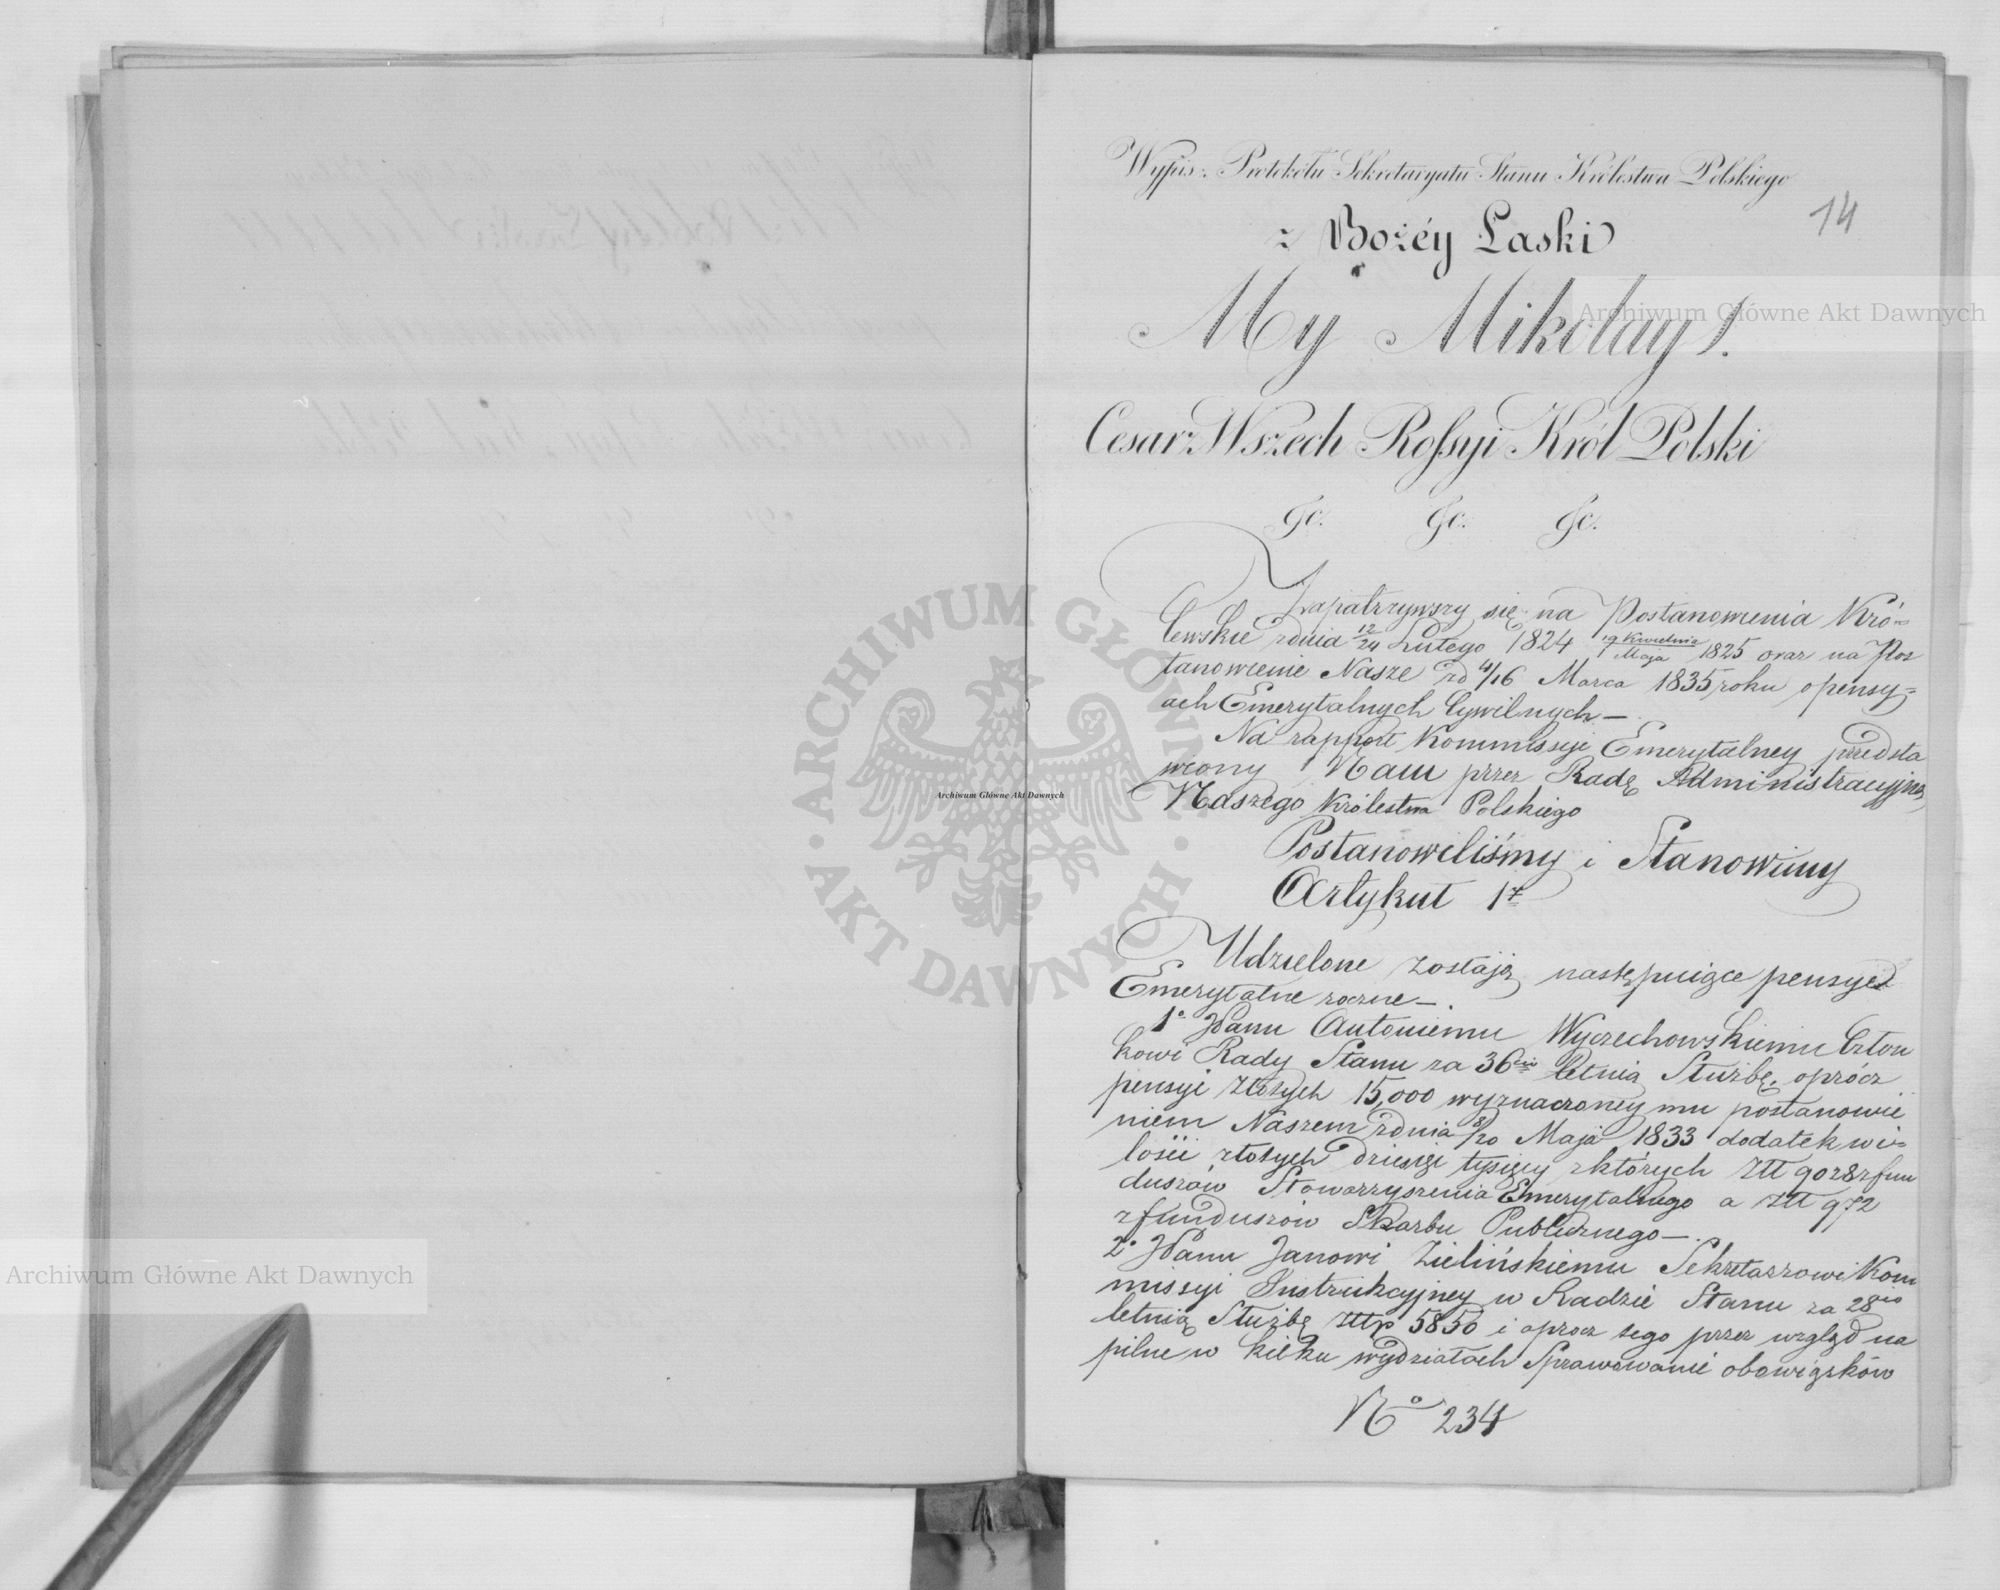 Wypis z Protokółu Sekretaryatu Stanu Królestwa Polskiego
14
z Bożéy Łaski
My Mikołay I.
Cesarz Wszech Rossyi Król Polski
&c. &c. &c.
Zapatrzywszy się na Postanowienia Kró=
lewskie z dnia 12/24 Lutego 1824 19 Kwietnia/1 Maja 1825 oraz na Pos
tanowienie Nasze z d 4/16 Marca 1835 roku o pensy=
ach Emerytalnych Cywilnych —
Na rapport Kommissyi Emerytalney przedsta
wiony Nam przez Radę Administracyjną
Naszego Królestwa Polskiego
Postanowiliśmy i Stanowimy
Artykuł 1
Udzielone zostają następuiące pensye
Emerytalne roczne —.
1° JPanu Antoniemu Wyczechowskiemu Człon
kowi Rady Stanu za 36cio letnią Służbę, oprócz
pensyi złotych 15,000 wyznaczoney mu postanowie
niem Naszem z dnia 8/20 Maja 1833 dodatek w i=
lości złotych dziesięć tysięcy z których Złł 9028 z fun
duszów Stowarzyszenia Emerytalnego a Złł 972
z funduszów Skarbu Publicznego —.
2° JPanu Janowi Zielińskiemu Sekretarzowi Kom
missyi Instrukcyjney w Radzie Stanu za 28mio
letnią Służbę Złłp 5850 i oprocz tego przez wzgląd na
pilne w kilku wydziałach Sprawowanie obowiązków
N° 234
Archiwum Główne Akt Dawnych
Archiwum Główne Akt Dawnych
Archiwum Główne Akt Dawnych
· ARCHIWUM GŁÓWNE · AKT DAWNYCH ·